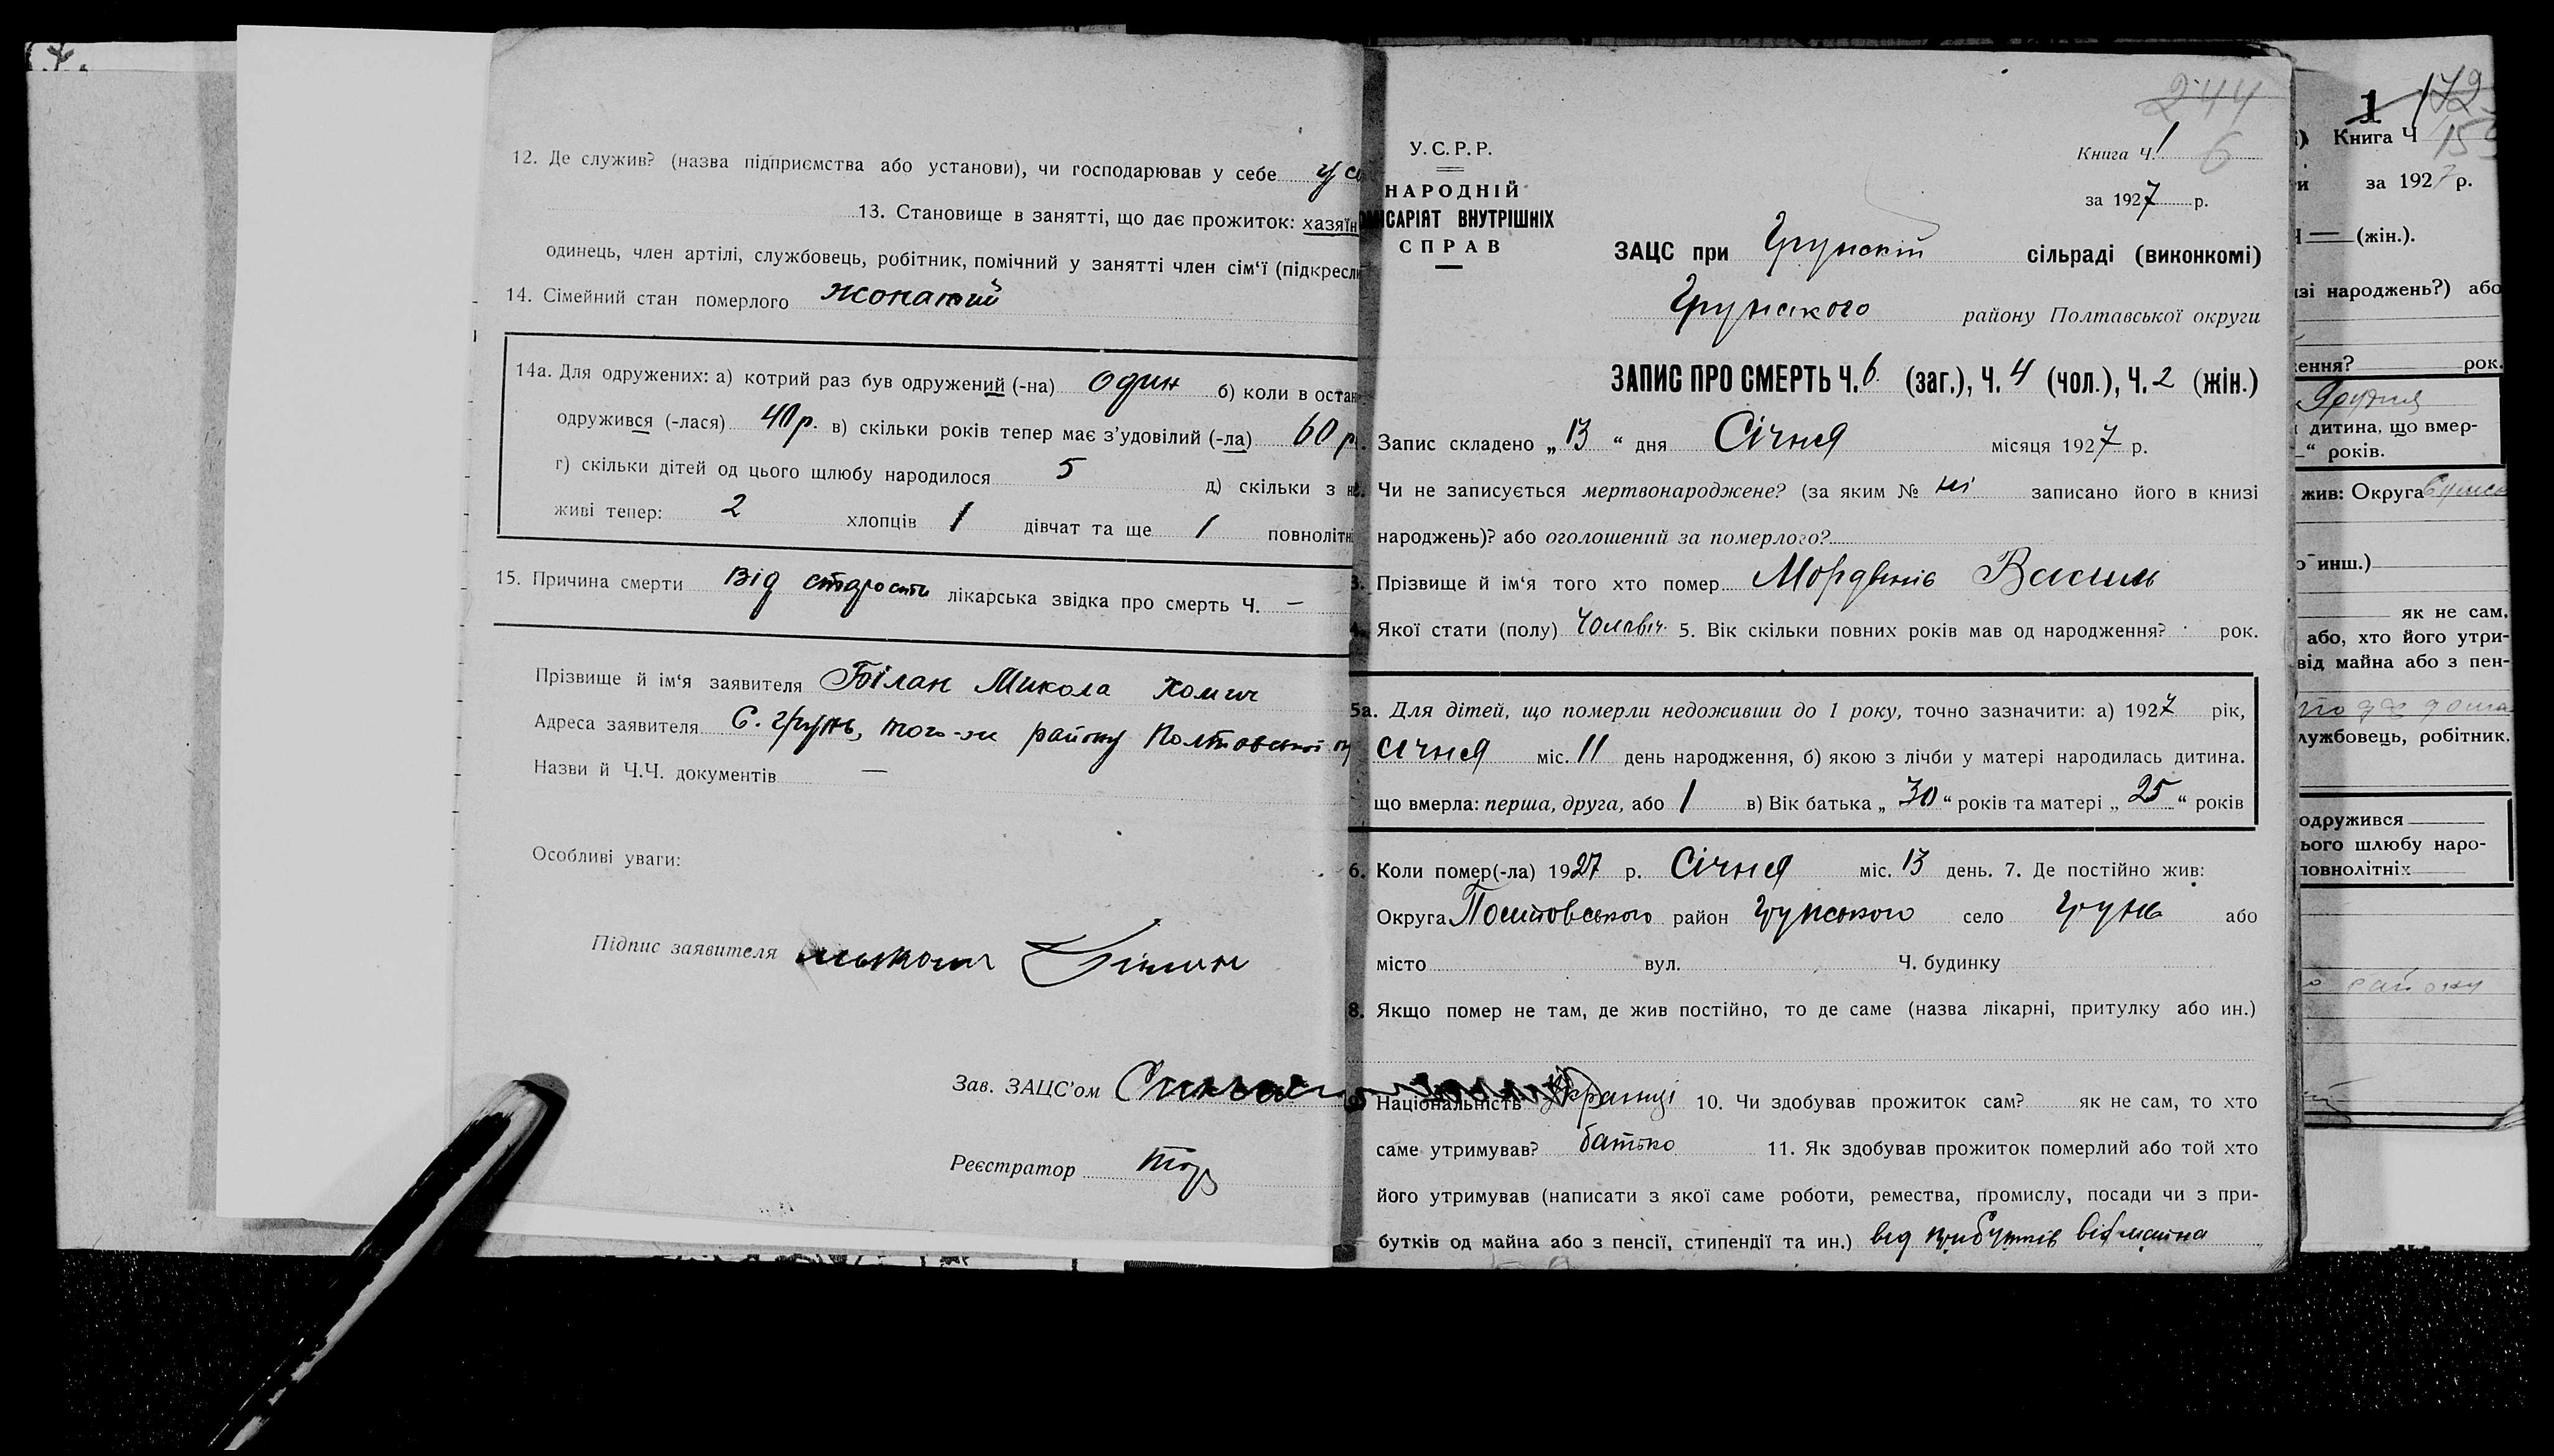 12. Де служив? (назва підприємства або установи), чи господарював у себе у
13. Становище в занятті, що дає прожиток: хазяїн
одинець, член артілі, службовець, робітник, помічний у занятті член сім‘ї (підкресли
14. Сімейний стан померлого жонатий
14а. Для одружених: а) котрий раз був одружений (-на) один б) коли в остан
одружився (-лася) 40 р. в) скільки років тепер має з’удовілий (-ла) 60 р.
г) скільки дітей од цього шлюбу народилося 5 д) скільки з н
живі тепер: 2 хлопців 1 дівчат та ще 1 повнолітн
15. Причина смерти від старости лікарська звідка про смерть Ч. —
Прізвище й ім‘я заявителя Білан Микола Хомич
Адреса заявителя С. Грунь, того-ж району Полтавської
Назви й Ч.Ч. документів —
Особливі уваги:
Підпис заявителя Микола Білан
Зав. ЗАЦС’ом
Реєстратор
244
У.С.Р.Р.
НАРОДНІЙ
КОМІСАРІЯТ ВНУТРІШНІХ
СПРАВ
Книга Ч. 1 6
за 1927 р.
ЗАЦС при Грунскій сільраді (виконкомі)
Грунського району Полтавської округи
ЗАПИС ПРО СМЕРТЬ Ч. 6 (заг.), Ч. 4 (чол.), Ч. 2 (жін.)
Запис складено „ 13 “ дня Січня місяця 1927 р.
Чи не записується мертвонароджене? (за яким № ні записано його в книзі
народжень)? або оголошений за померлого?
3. Прізвище й ім‘я того хто помер Мордвинів Василь
4. Якої стати (полу) Чоловіч. 5. Вік скільки повних років мав од народження? рок.
5а. Для дітей, що померли недоживши до 1 року, точно зазначити: а) 1927 рік,
січня міс. 11 день народження, б) якою з лічби у матері народилась дитина.
що вмерла: перша, друга, або 1 в) Вік батька „ 30 “ років та матері „ 25 “ років
6. Коли помер(-ла) 1927 р. Січня міс. 13 день. 7. Де постійно жив:
Округа Полтовського район Грунського село Грунь або
місто вул. Ч. будинку
8. Якщо помер не там, де жив постійно, то де саме (назва лікарні, притулку або ин.)
9. Національність Українці 10. Чи здобував прожиток сам? як не сам, то хто
саме утримував? батько 11. Як здобував прожиток померлий або той хто
його утримував (написати з якої саме роботи, ремества, промислу, посади чи з при-
бутків од майна або з пенсії, стипендії та ин.) від прибутків від майна
1 172
Книга Ч 155
и за 1927 р.
— (жін.).
ізі народжень?) або
ення? рок.
Грудня
дитина, що вмер-
“ років.
жив: Округа
о инш.)
як не сам,
або, хто його утри-
від майна або з пен-
лужбовець, робітник,
одружився
ього шлюбу наро-
повнолітніх
району